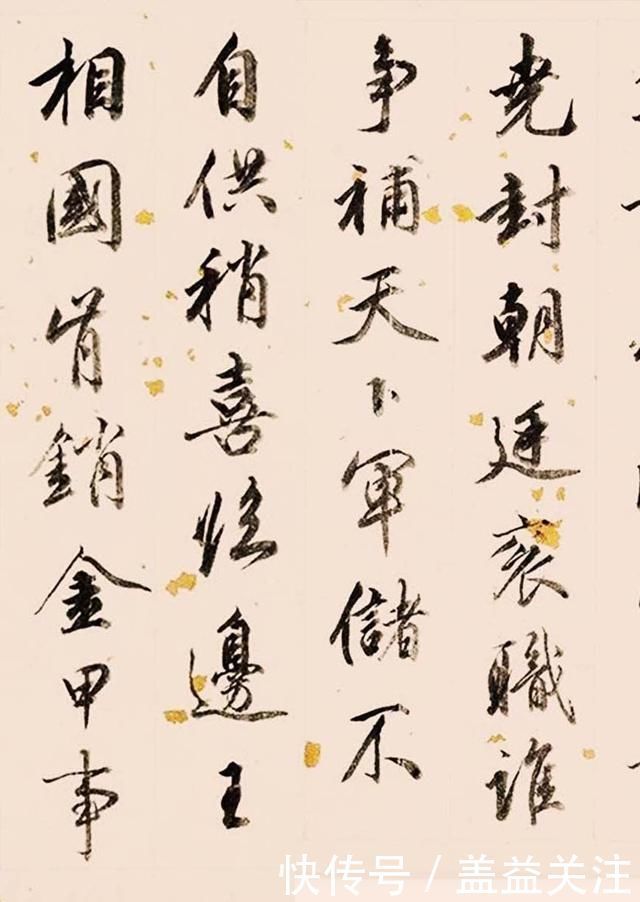 堯封朝廷袞職誰
争補天下軍儲不
自供稍喜臨邊王
相國肯銷金甲事
快传号/盖益关注